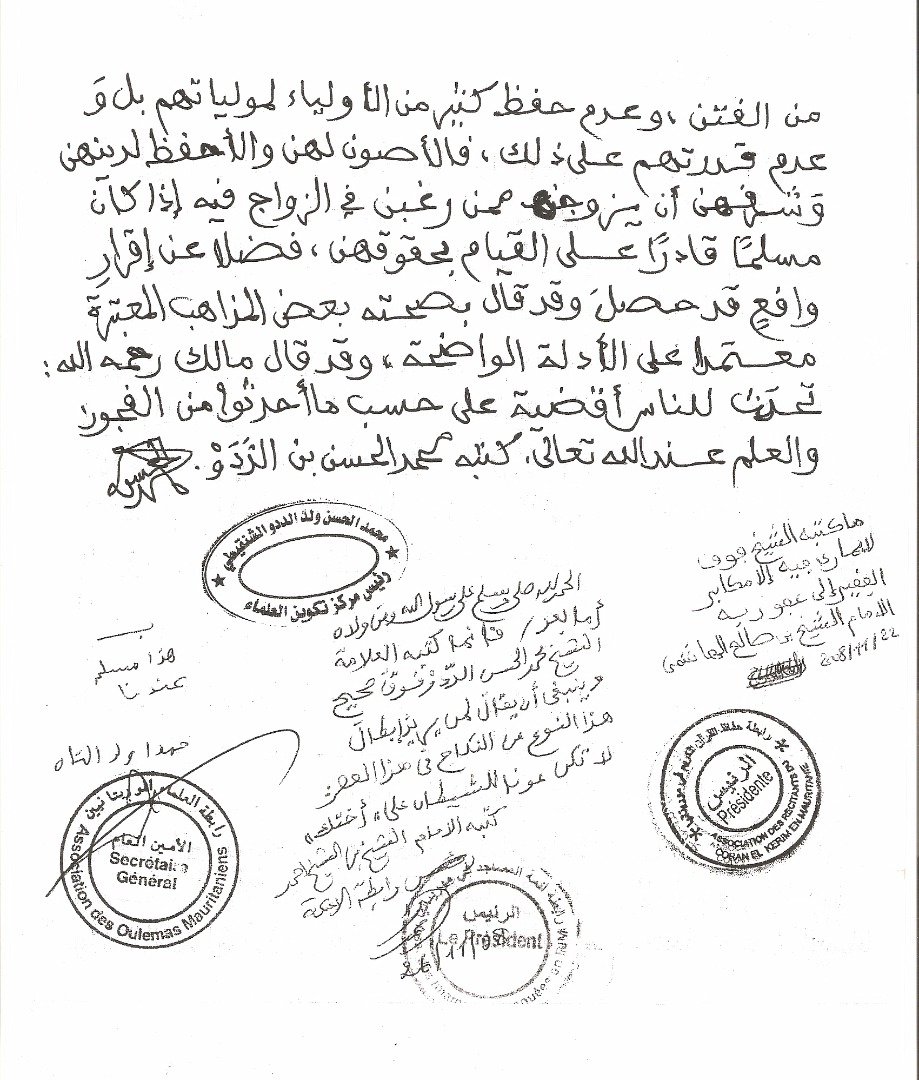 من الفتن ،وعدم حفظ كثير من الأولياء لمولياتهم بل وَ
عدم قدرتهم على ذلك ، فالأصون لهن والأحفظ لدينهن
وَشرفهن أن يزوجن ممن رغبن في الزواج فيه إذا كان
مسلمًا قادرًا على القيام بحقوقهن ، فضلا عن إقرار
واقعٍ قد حصلَ وقد قال بصحته بعض المذاهب المعتبرة
معتمدا على الأدلة الواضحة ، وقد قال مالك رحمه الله :
تَحدُث للناس أقضية على حسب ما أحدثوا من الفجور
والعلم عند الله تعالى. كتبه محمد الحسن بن الدَّدَوْ.
محمد الحسن ولد الددو الشنقيطي
رئيس مركز تكوين العلماء
ما كتبه الشيخ فوق
لا يماري فيه إلا مكابر
الفقير إلى عفو ربه
الامام الشيخ بن صالح الهاشمي
2008/11/22
الرئيس
Présidente
رابطة حفاظ القرآن الكريم في موريتانيا
ASSOCIATION DES RECITANTS DU
CORAN EL KERIM EN MAURITANIE
الحمد لله صلى وسلم على رسول الله ومن والاه
أما بعد / فإنما كتبه العلامة
الشيخ محمد الحسن الددو فوق صحيح
وينبغي أن يقال لمن يريد إبطال
هذا النوع من النكاح في هذا العصر
لا تكن عونا للشيطان على "أختك"
كتبه الامام الشيخ بن الشيخ أحمد
رئيس رابطة الأئمة
رابطة أئمة المساجد في
الرئيس
Le Président
هذا مسلم
عندنا
حمدا ولد التاه
رابطة العلماء الموريتانيين
الأمين العام
Secrétaire
Général
Association des Oulemas Mauritaniens